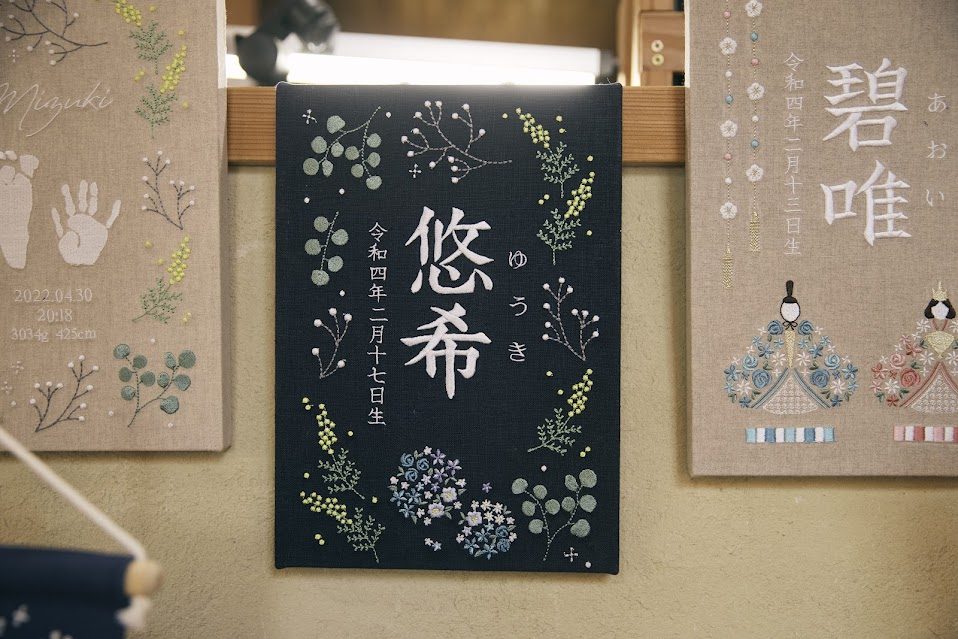 Mizuki
2022.04.30
20:18
3034g 425cm
悠希
ゆうき
令和四年二月十七日生
碧唯
あおい
令和四年二月十三日生